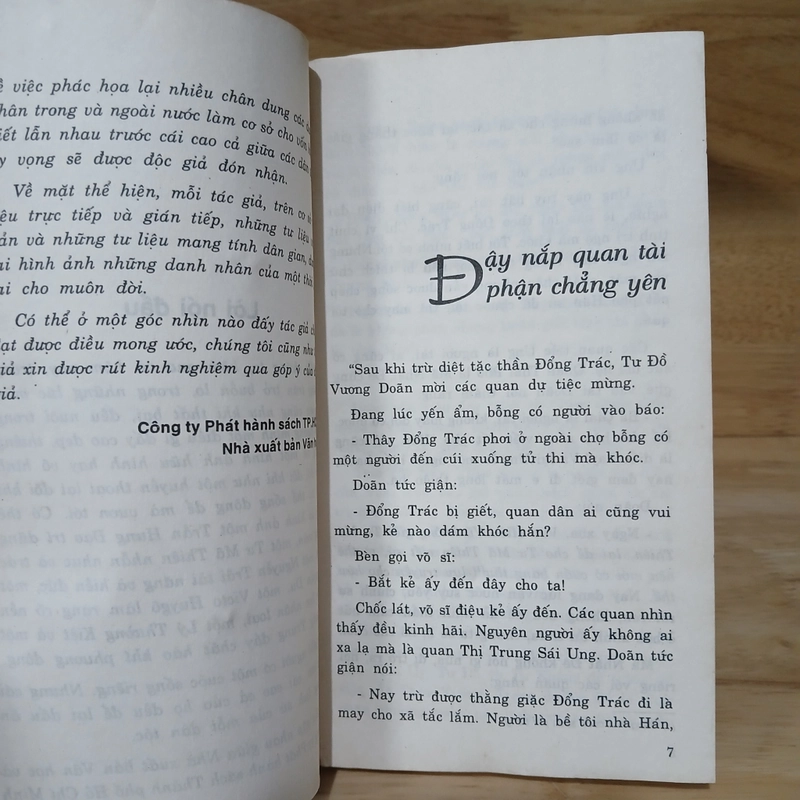 việc phác họa lại nhiều chân dung các
trong và ngoài nước làm cơ sở cho vốn
lẫn nhau trước cái cao cả giữa các
vọng sẽ được độc giả đón nhận.
Về mặt thể hiện, mỗi tác giả, trên cơ
trực tiếp và gián tiếp, những tư liệu
và những tư liệu mang tính dân gian,
hình ảnh những danh nhân của một
cho muôn đời.
Có thể ở một góc nhìn nào đấy tác giả
được điều mong ước, chúng tôi cũng như
xin được rút kinh nghiệm qua góp ý của
giả.
Công ty Phát hành sách
Nhà xuất bản Văn
Đậy nắp quan tài
phận chẳng yên
“Sau khi trừ diệt tặc thần Đổng Trác, Tư Đồ
Vương Doãn mời các quan dự tiệc mừng.
Đang lúc yến ẩm, bỗng có người vào báo:
- Thây Đổng Trác phơi ở ngoài chợ bỗng có
một người đến cúi xuống tử thi mà khóc.
Doãn tức giận:
- Đổng Trác bị giết, quan dân ai cũng vui
mừng, kẻ nào dám khóc hắn?
Bèn gọi võ sĩ:
- Bắt kẻ ấy đến đây cho ta!
Chốc lát, võ sĩ điệu kẻ ấy đến. Các quan nhìn
thấy đều kinh hãi. Nguyên người ấy không ai
xa lạ mà là quan Thị Trung Sái Ung. Doãn tức
giận nói:
- Nay trừ được thằng giặc Đổng Trác đi là
may cho xã tắc lắm. Người là bề tôi nhà Hán,
7